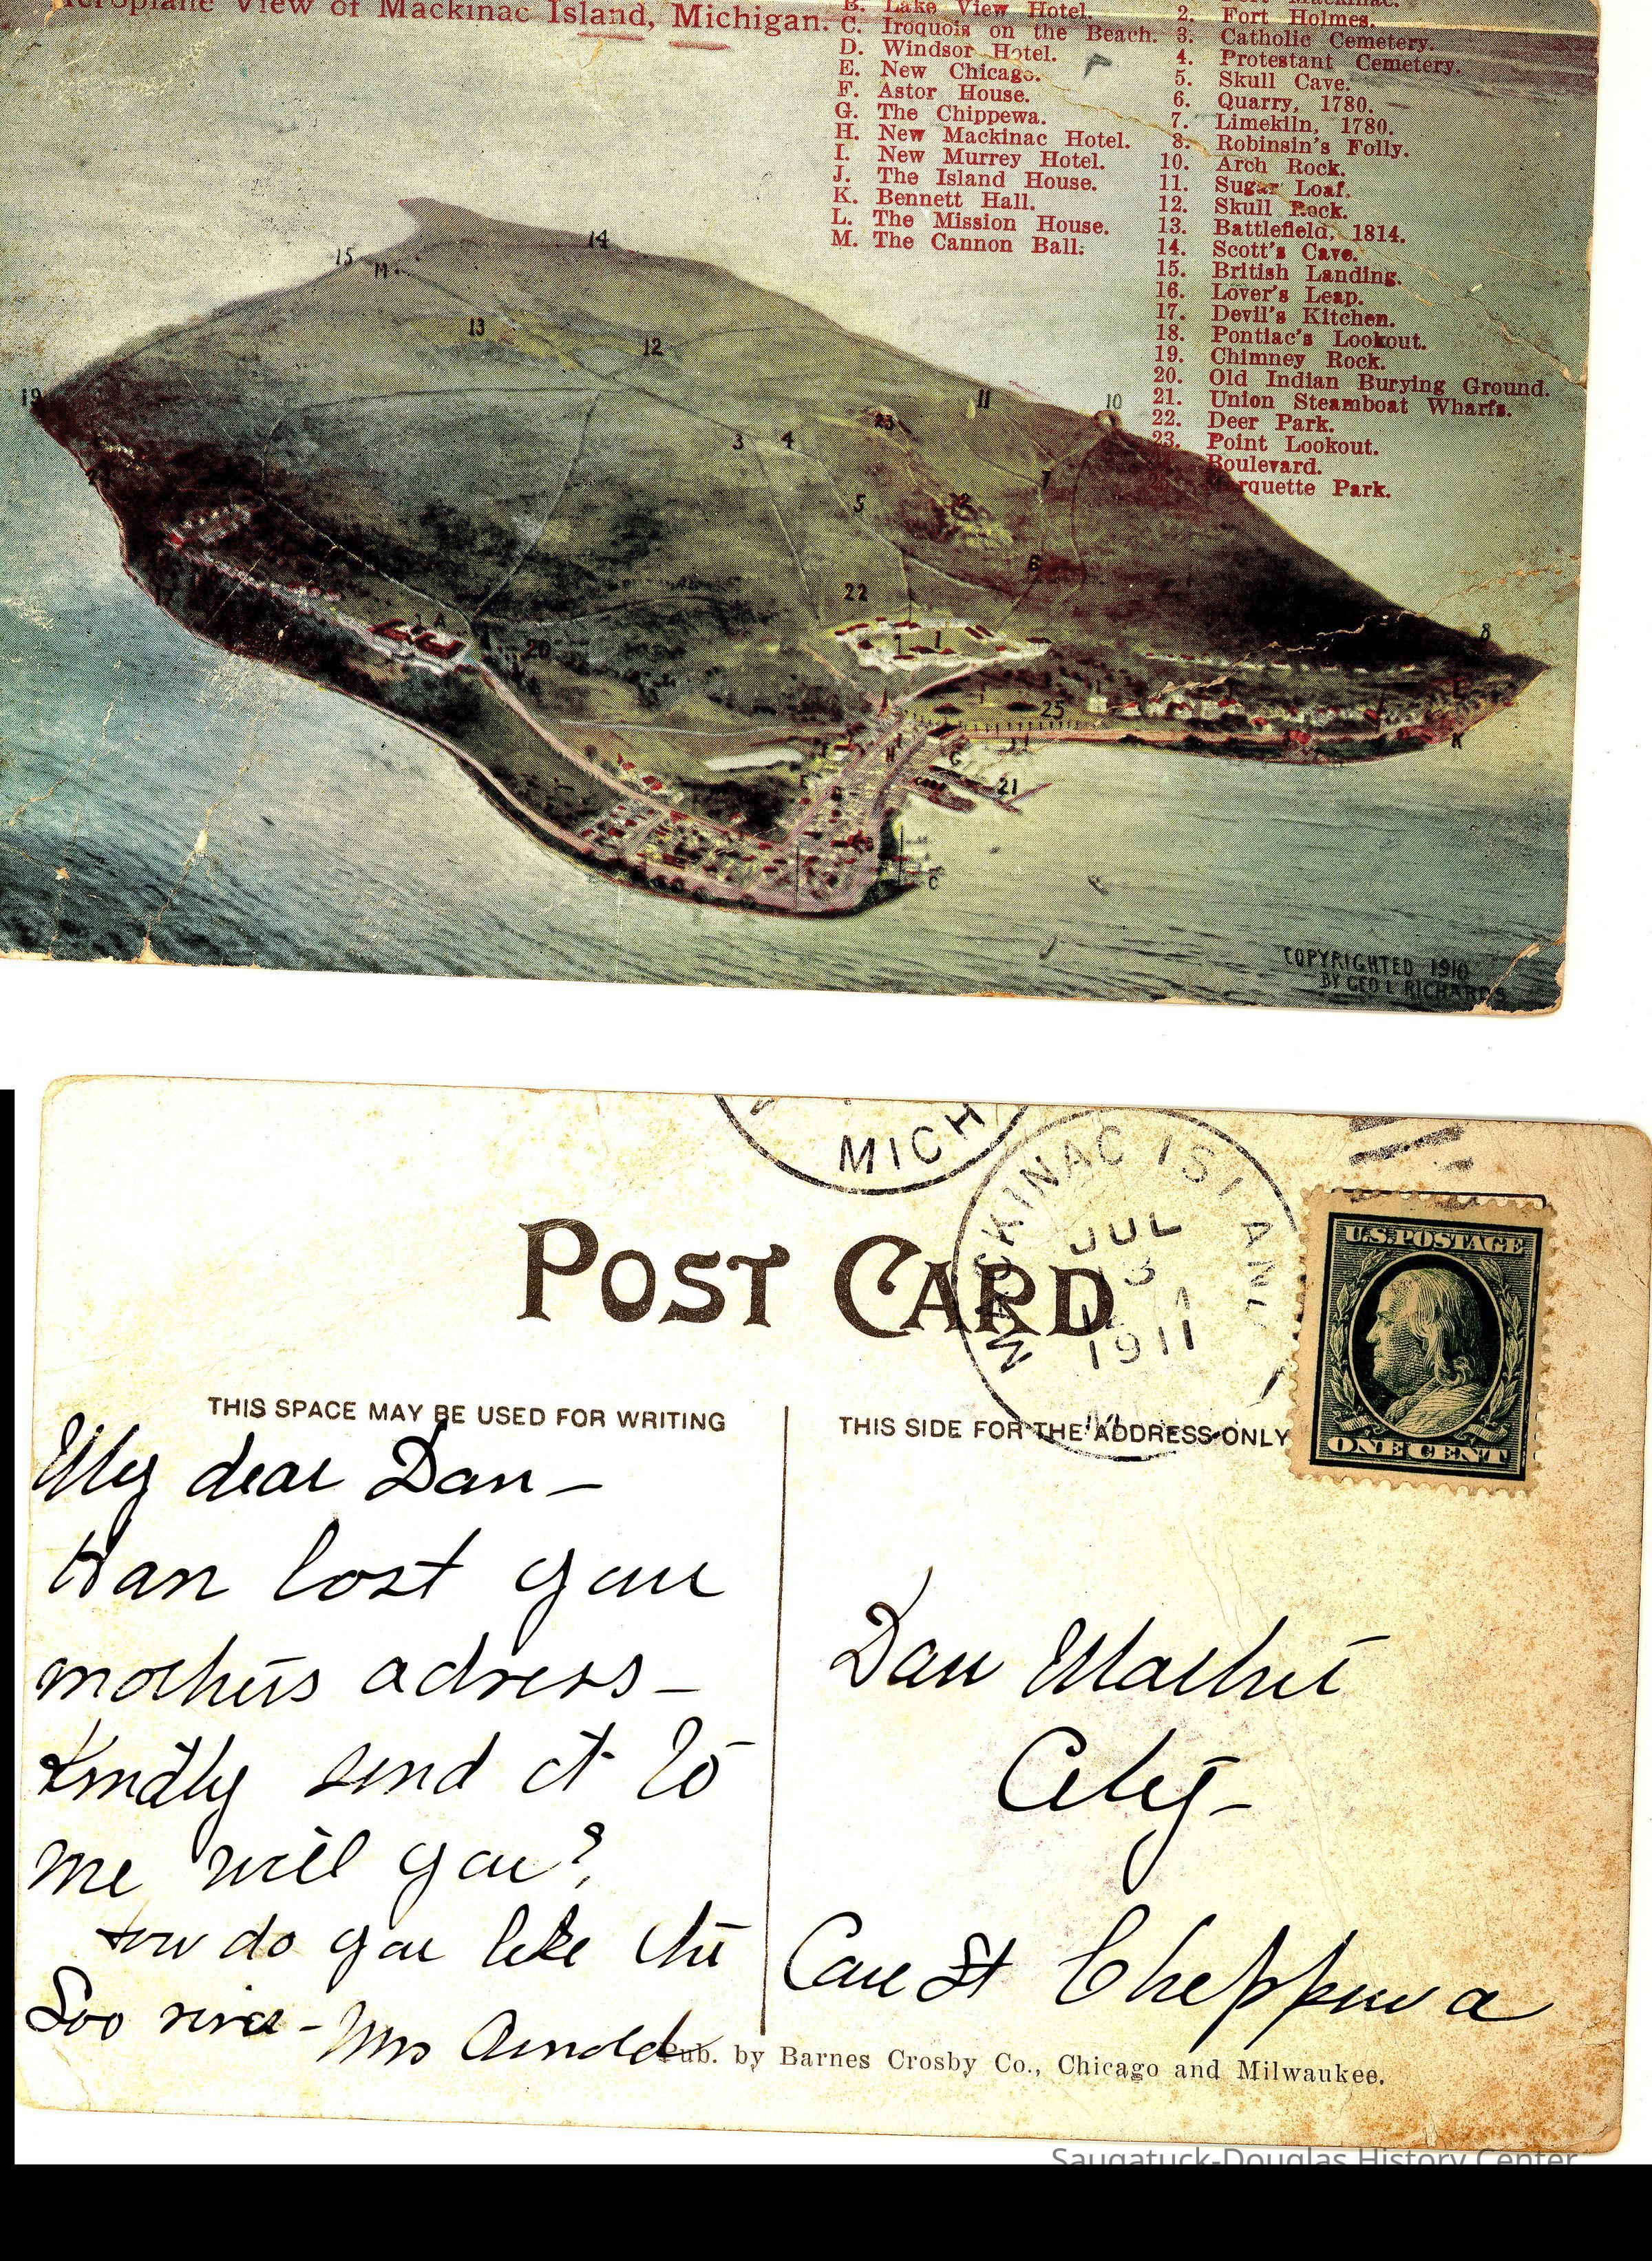 View of Mackinac Island, Michigan.
B. Lake View Hotel.
C. Iroquois on the Beach.
D. Windsor Hotel.
E. New Chicago.
F. Astor House.
G. The Chippewa.
H. New Mackinac Hotel.
I. New Murrey Hotel.
J. The Island House.
K. Bennett Hall.
L. The Mission House.
M. The Cannon Ball.
2. Fort Holmes.
3. Catholic Cemetery.
4. Protestant Cemetery.
5. Skull Cave.
6. Quarry, 1780.
7. Limekiln, 1780.
8. Robinsin's Folly.
10. Arch Rock.
11. Sugar Loaf.
12. Skull Rock.
13. Battlefield, 1814.
14. Scott's Cave.
15. British Landing.
16. Lover's Leap.
17. Devil's Kitchen.
18. Pontiac's Lookout.
19. Chimney Rock.
20. Old Indian Burying Ground.
21. Union Steamboat Wharfs.
22. Deer Park.
23. Point Lookout.
Boulevard.
Park.
15 M 14
13 12
19 11 10
3 4 23
5 7
6
22
8
A 20
25
21
C
COPYRIGHTED 1910
BY GEO L RICHARDS
MICH
MACKINAC ISLAND
JUL
3
1911
U.S. POSTAGE
ONE CENT
POST CARD
THIS SPACE MAY BE USED FOR WRITING
THIS SIDE FOR THE ADDRESS ONLY
My dear Dan -
Han lost your
mothers adress -
Kindly send it to
me will you?
How do you like the
Soo river - Mrs Arnold
Dan
City -
Care St Cheppewa
Pub. by Barnes Crosby Co., Chicago and Milwaukee.
Saugatuck-Douglas History Center